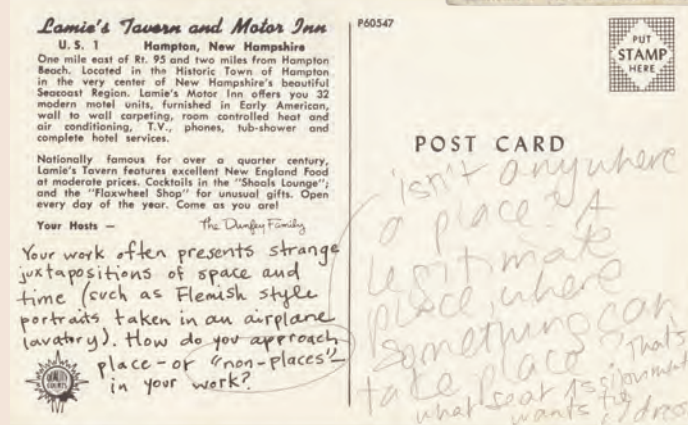 Lamie's Tavern and Motor Inn
U. S. 1 Hampton, New Hampshire
One mile east of Rt. 95 and two miles from Hampton
Beach. Located in the Historic Town of Hampton
in the very center of New Hampshire's beautiful
Seacoast Region. Lamie's Motor Inn offers you 32
modern motel units, furnished in Early American,
wall to wall carpeting, room controlled heat and
air conditioning, T.V., phones, tub-shower and
complete hotel services.
Nationally famous for over a quarter century,
Lamie's Tavern features excellent New England Food
at moderate prices. Cocktails in the "Shoals Lounge";
and the "Flaxwheel Shop" for unusual gifts. Open
every day of the year. Come as you are!
Your Hosts — The Dunfey Family
Your work often presents strange
juxtapositions of space and
time (such as Flemish style
portraits taken in an airplane
lavatory). How do you approach
place – or "non-places" –
in your work?
QUALITY
COURTS
P60547
PUT
STAMP
HERE
POST CARD
isn't anywhere
a place? A
legitimate
place, where
something can
take place? That's
what Seat Assignment
wants to
address